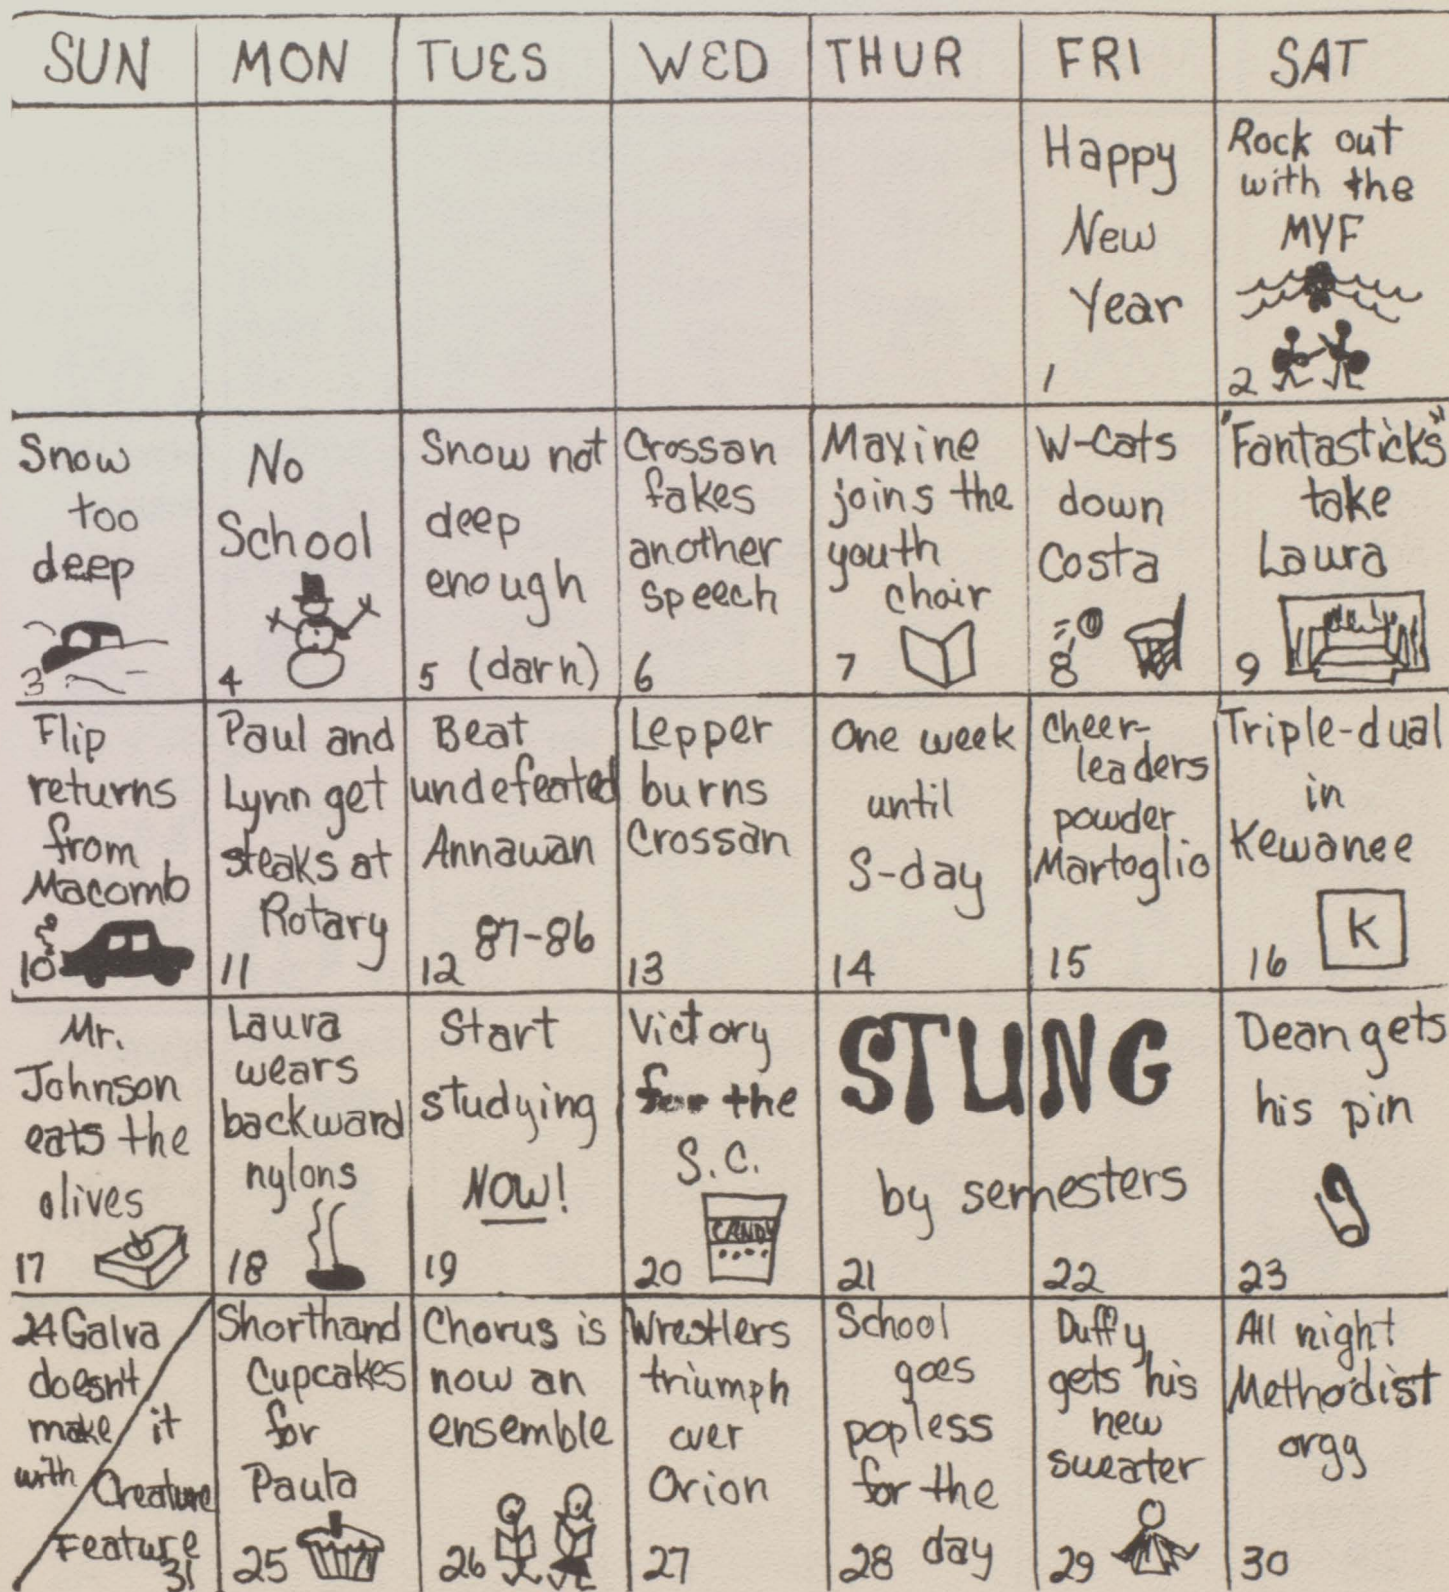 SUN MON TUES WED THUR FRI SAT
Happy
New
Year
1
Rock out
with the
MYF
2
Snow
too
deep
3
No
School
4
Snow not
deep
enough
5 (darn)
Crossan
fakes
another
speech
6
Maxine
joins the
youth
choir
7
W-Cats
down
Costa
8
"Fantasticks"
take
Laura
9
Flip
returns
from
Macomb
10
Paul and
Lynn get
steaks at
Rotary
11
Beat
undefeated
Annawan
87-86
12
Lepper
burns
Crossan
13
One week
until
S-day
14
Cheer-
leaders
powder
Martoglio
15
Triple-dual
in
Kewanee
K
16
Mr.
Johnson
eats the
olives
17
Laura
wears
backward
nylons
18
Start
studying
NOW!
19
Victory
for the
S.C.
CANDY
20
STUNG
by semesters
21 22
Dean gets
his pin
23
24 Galva
doesn't
make it
with Creature
Feature
31
Shorthand
Cupcakes
for
Paula
25
Chorus is
now an
ensemble
26
Wrestlers
triumph
over
Orion
27
School
goes
popless
for the
day
28
Duffy
gets his
new
sweater
29
All night
Methodist
orgg
30